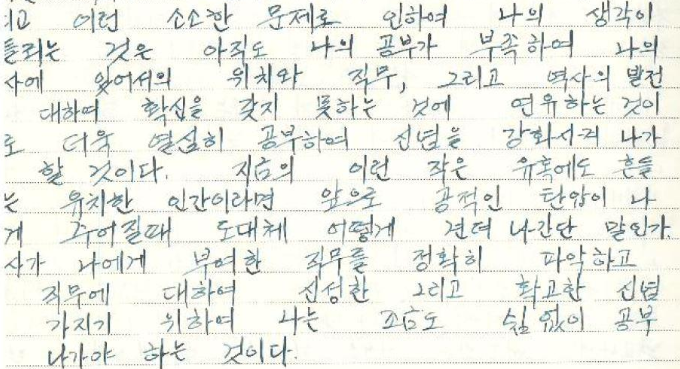 이고 이런 소소한 문제로 인하여 나의 생각이
틀리는 것은 아직도 나의 공부가 부족하여 나의
사에 있어서의 위치와 직무, 그리고 역사의 발전
대하여 확신을 갖지 못하는 것에 연유하는 것이
로 더욱 열심히 공부하여 신념을 강화시켜 나가
할 것이다. 지금의 이런 작은 유혹에도 흔들
는 유치한 인간이라면 앞으로 공적인 탄압이 나
게 주어질때 도대체 어떻게 견뎌 나간단 말인가.
사가 나에게 부여한 직무를 정확히 파악하고
직무에 대하여 신성한 그리고 확고한 신념
가지기 위하여 나는 조금도 쉼 없이 공부
나가야 하는 것이다.